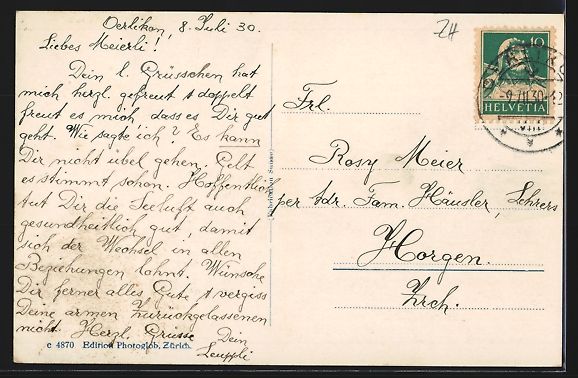 Oerlikon, 8. Juli 30.
Liebes Meierli!
Dein l. Grüsschen hat
mich herzl. gefreut & doppelt
freut es mich, dass es Dir gut
geht. Wie sagte ich? Es kann
Dir nicht übel gehen. Gelt
es stimmt schon. Hoffentlich
tut Dir die Seeluft auch
gesundheitlich gut, damit
sich der Wechsel in allen
Beziehungen lohnt. Wünsche
Dir ferner alles Gute & vergiss
Deine armen Zurückgelassenen
nicht. Herzl. Grüsse
Dein
Leuppli
c 4870 Edition Photoglob, Zürich.
ZH
10
HELVETIA
Frl.
Rosy Meier
per Adr. Fam. Häusler, Lehrers
Horgen.
Zrch.